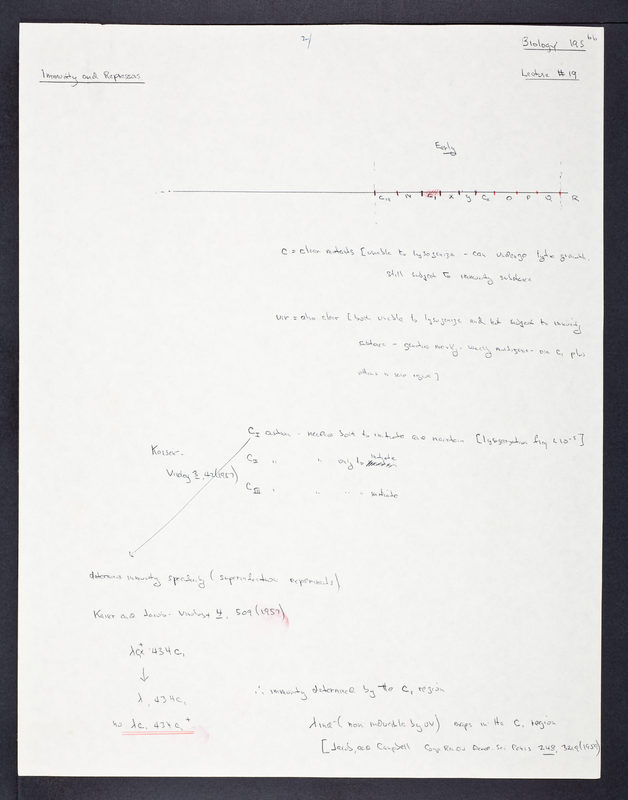 2/
Biology 195 bb
Immunity and Repressors
Lecture #19
Early
CIII N C1 X y CII O P Q R
C = clear mutants [unable to lysogenize - can undergo lytic growth.
Still subject to immunity substance
vir = also clear [both unable to lysogenize and not subject to immunity
substance - genetics - usually multigenic - one C1 plus
others in same region]
CI action - needed both to initiate and maintain [lysogenization freq <10⁻⁵]
CII " " only to initiate
CIII " " " " initiate
Kaiser -
Virology 3, 42 (1957)
determines immunity specificity (superinfection experiments)
Kaiser and Jacob - Virology 4, 509 (1957)
434 C1
↓
λ, 434 C1
no λC1 434 C1⁺
∴ immunity determined by the C1 region
λ ind⁻ (non inducible by UV) maps in the C1 region
[Jacob and Campbell Comp. Rend. Acad. Sci. Paris 248, 3219 (1959)